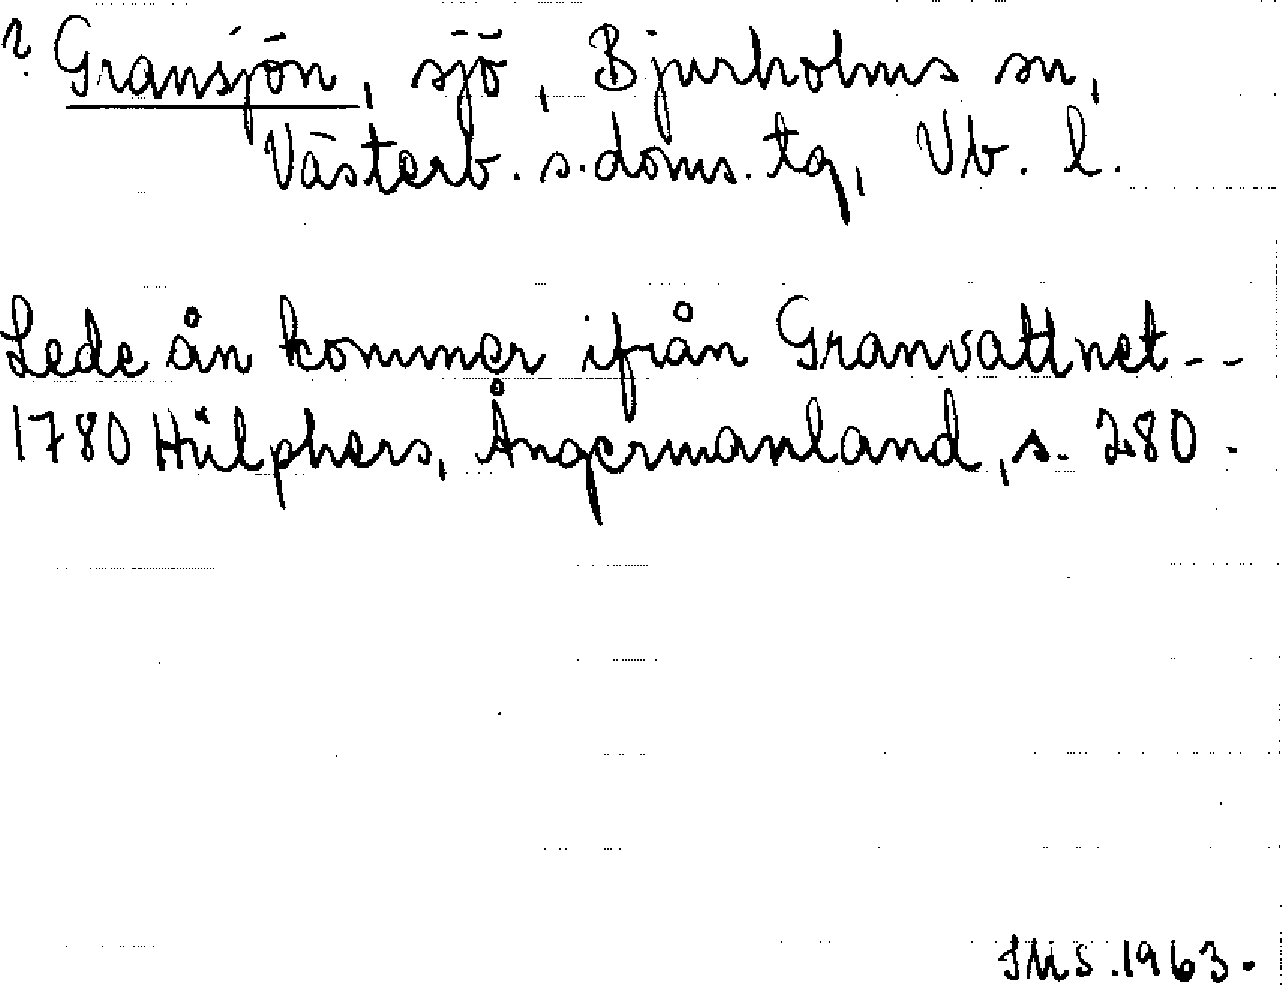 ? Gransjön, sjö, Bjurholms sn,
Västerb. s. doms. tg, Vb. l.
Lede ån kommer ifrån Granvattnet --
1780 Hülphers, Ångermanland, s. 280.
IMS. 1963.